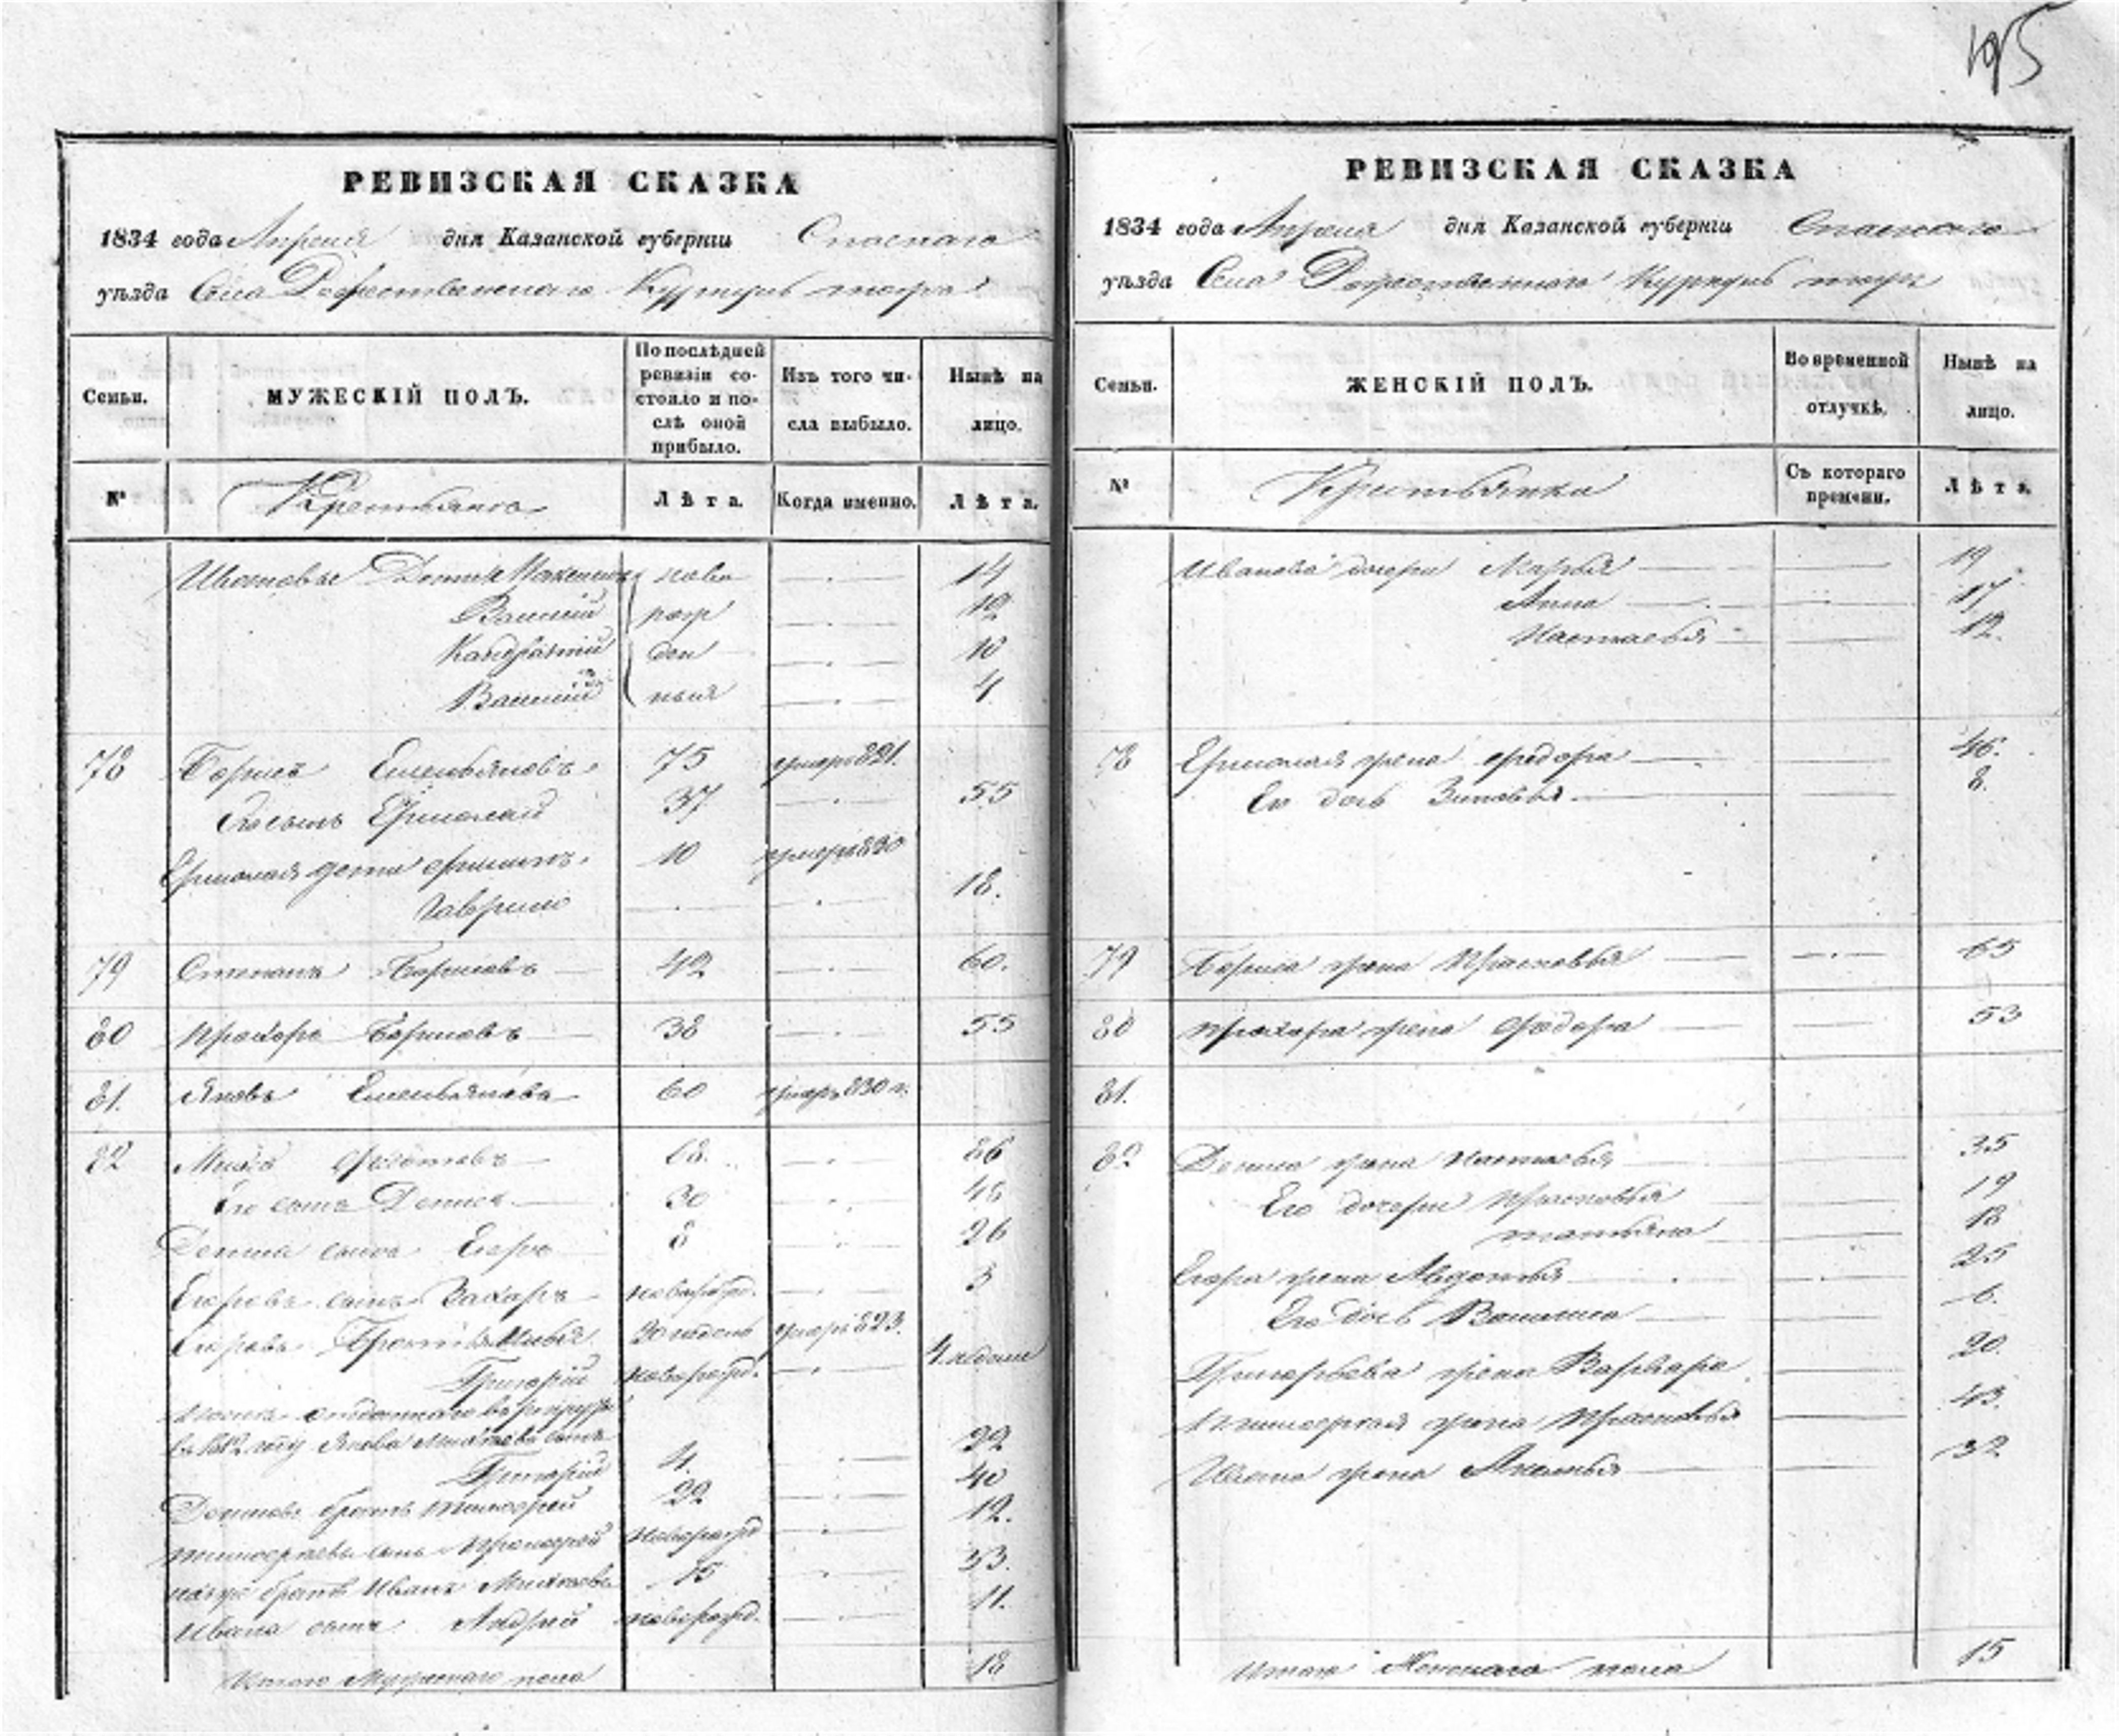 195
РЕВИЗСКАЯ СКАЗКА
1834 года Апреля дня Казанской губернiи Спаскаго
уѣзда Села Рожественскаго
Семьи.
МУЖЕСКIЙ ПОЛЪ.
По послѣдней ревизiи со-
стояло и по-
слѣ оной
прибыло.
Изъ того чи-
сла выбыло.
Нынѣ на
лицо.
№
Лѣта.
Когда именно.
Лѣта.
Ивановы Дети ново 14
Василий рож 12
Кандратий ден 10
Василий ныя 4
78 Борисъ Емельяновъ 75 умеръ 821.
Его сынъ Ермолай 37 55
Ермолая дети 10 умеръ 830
Гаврило 18.
79 Степанъ Борисовъ 42 60.
80 Прохоръ Борисовъ 38 55
81. Яковъ Емельяновъ 60 умеръ 830 г.
82 68. 86
Его сынъ Денисъ 30 48
Дениса сынъ Егоръ 8 26
Егоровъ сынъ Захаръ новорожд. 3
Егоровы Братья Илья 20 недель умеръ 823.
Григорий новорожд. 4 недели
в 1812 году Якова сынъ
Григорий 4. 22
Денисовъ братъ Тимофей 22 40
Тимофеевъ сынъ Прокофей новорожд 12.
братъ Иванъ 15 33.
Ивана сынъ Андрей новорожд. 11.
Итого Мужескаго пола 18
РЕВИЗСКАЯ СКАЗКА
1834 года Апреля дня Казанской губернiи Спаскаго
уѣзда Села Рожественскаго
Семьи.
ЖЕНСКIЙ ПОЛЪ.
Во временной
отлучкѣ.
Нынѣ на
лицо.
№
Съ котораго
времени.
Лѣта.
Иванова дочери Марья 19
Анна 17
Настасья 12.
78 Ермолая жена Федора 46.
Его дочь Зиновья 8.
79 Бориса жена Прасковья 65
80 Прохора жена Федора 53
81.
82 Дениса жена Настасья 35
Его дочери Прасковья 19
Татьяна 18
Егора жена Авдотья 25
Его дочь Василиса 6.
Григорьева жена Варвара 20.
Тимофея жена Прасковья 43.
Ивана жена Акулина 32
Итого Женскаго пола 15